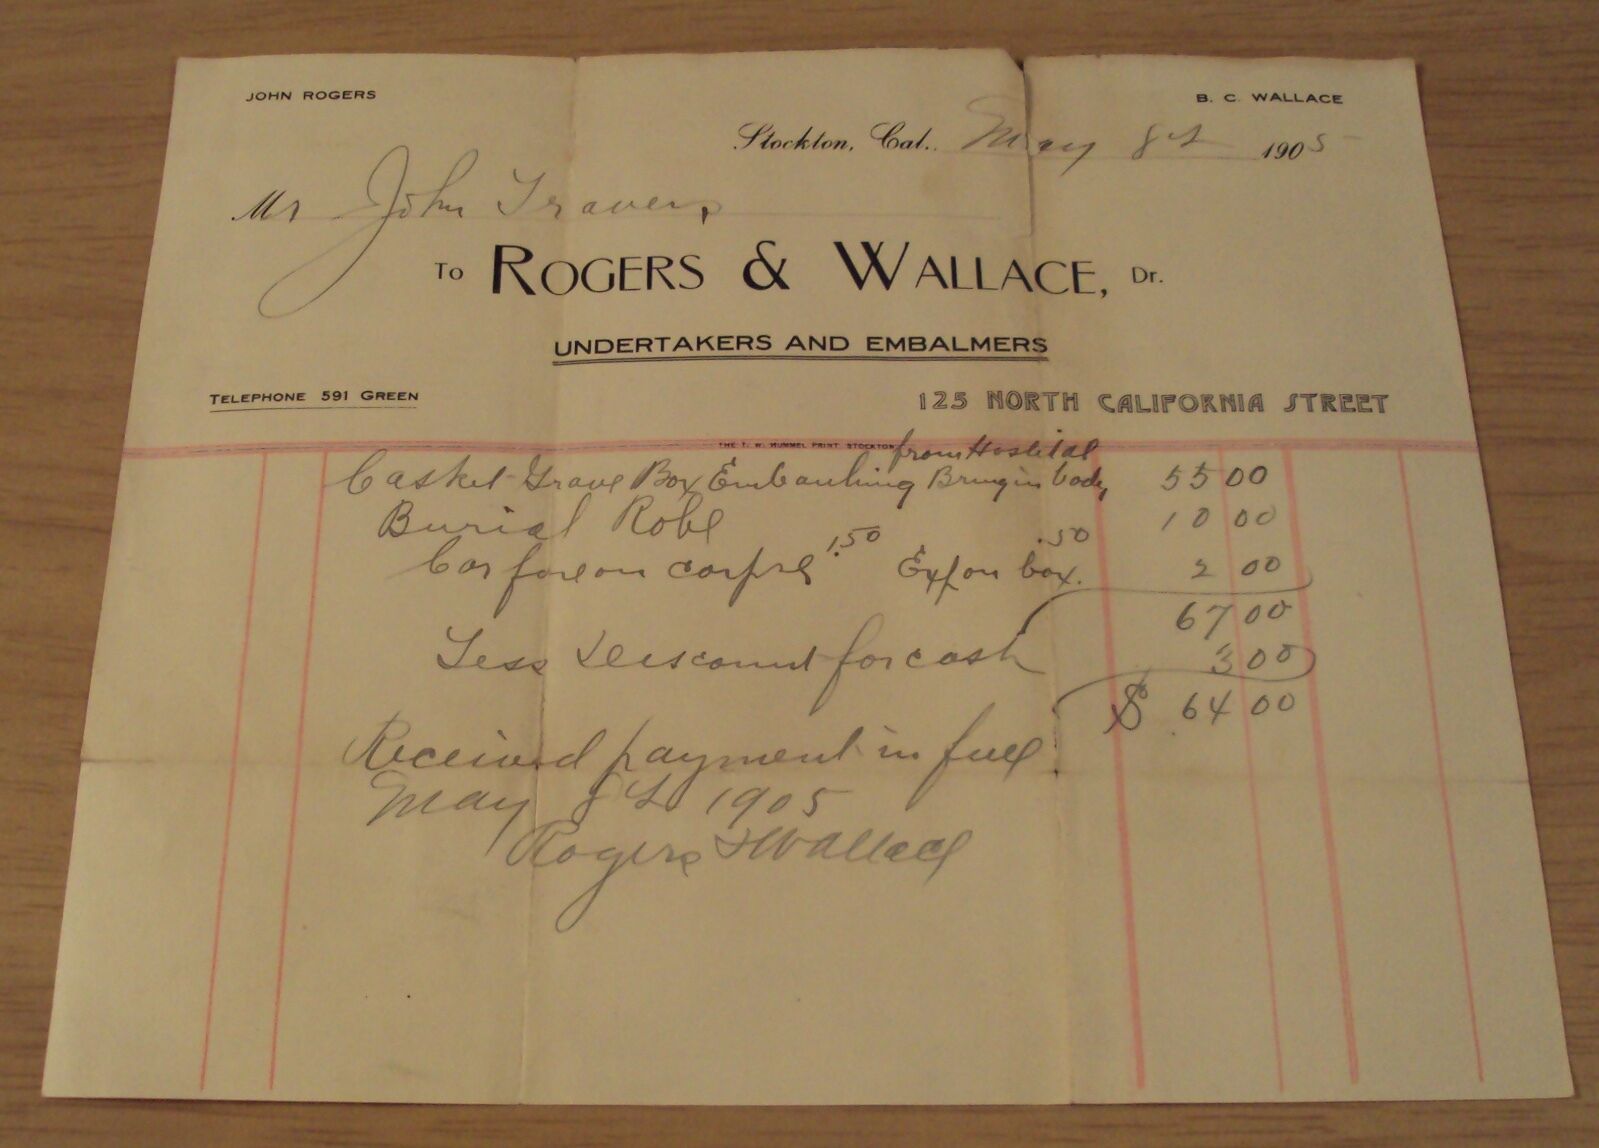 JOHN ROGERS
B. C. WALLACE
Stockton, Cal., May 8th 1905
Mr John Travers
To ROGERS & WALLACE, Dr.
UNDERTAKERS AND EMBALMERS
TELEPHONE 591 GREEN
125 NORTH CALIFORNIA STREET
THE T. W. HUMMEL PRINT STOCKTON
from Hospital
Casket Grave Box Embaulming Bringin body 55 00
Burial Robe 10 00
Car fare on corpse 1.50 Exp on box .50 2 00
67 00
Less Discount for cash 3 00
$ 64 00
Received payment in full
May 8th 1905
Rogers & Wallace